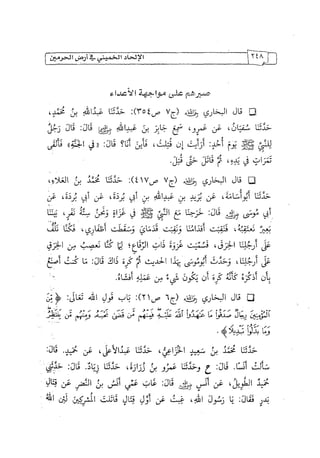 ٢٤٨ الإلحاد الخميني في أرض الحرمين
صبرهم على مواجهة الأعداء
□ قال البخاري رحمه الله (ج٧ ص٣٥٤): حَدَّثَنَا عبدالله بنُ مُحَمَّدٍ،
حَدَّثَنَا سُفْيَانُ، عن عَمرٍو، سَمِعَ جَابِرَ بنَ عبدالله رضي الله عنهما قال: قال رَجُلٌ
لِلنَّبِيِّ ﷺ يَومَ أُحُدٍ: أَرَأَيتَ إن قُتِلْتُ، فَأَينَ أَنَا؟ قَالَ: «في الجَنَّةِ» فَأَلْقَى
تَمَرَاتٍ في يَدِهِ، ثُمَّ قَاتَلَ حَتَّى قُتِلَ.
□ قال البخاري رحمه الله (ج٧ ص٤١٧): حَدَّثَنَا مُحَمَّدُ بنُ العَلاءِ،
حَدَّثَنَا أَبُوأُسَامَةَ، عن بُرَيْدِ بنِ عبدالله بنِ أَبِي بُرْدَةَ، عن أَبِي بُرْدَةَ، عَن
أَبِي مُوسَى رضي الله عنه قَالَ: خَرَجْنَا مَعَ النَّبِيِّ ﷺ فِي غَزَاةٍ وَنَحْنُ سِتَّةُ نَفَرٍ، بَيْنَنَا
بَعِيرٌ نَعتَقِبُهُ، فَنَقِبَت أَقْدَامُنَا وَنَقِبَت قَدَمَايَ وَسَقَطَت أَظْفَارِي، فَكُنَّا نَلُفُّ
عَلَى أَرجُلِنَا الخِرَقَ، فَسُمِّيَت غَزوَةَ ذَاتِ الرِّقَاعِ؛ لِمَا كُنَّا نَعصِبُ مِنَ الخِرَقِ
عَلَى أَرجُلِنَا، وَحَدَّثَ أَبُومُوسَى بِهَذَا الحديث ثُمَّ كَرِهَ ذَاكَ قَالَ: مَا كُنتُ أَصنَعُ
بِأَن أَذكُرَهُ كَأَنَّهُ كَرِهَ أَن يَكُونَ شَيءٌ مِن عَمَلِهِ أَفشَاهُ.
□ قال البخاري رحمه الله (ج٦ ص٢١): بَاب قَولِ اللهِ تَعَالَى: ﴿مِّنَ
ٱلْمُؤْمِنِينَ رِجَالٌ صَدَقُوا۟ مَا عَـٰهَدُوا۟ ٱللَّهَ عَلَيْهِ فَمِنْهُم مَّن قَضَىٰ نَحْبَهُۥ وَمِنْهُم مَّن يَنتَظِرُ
وَمَا بَدَّلُوا۟ تَبْدِيلًا﴾.
حَدَّثَنَا مُحَمَّدُ بنُ سَعِيدٍ الخُزَاعِيُّ، حَدَّثَنَا عَبدُالأَعلَى، عَن حُمَيدٍ. قَالَ:
سَأَلتُ أَنَسًا. قَالَ: ح وحَدَّثَنَا عَمرُو بنُ زُرَارَةَ، حَدَّثَنَا زِيَادٌ. قَالَ: حَدَّثَنِي
حُمَيدٌ الطَّوِيلُ، عَن أَنَسٍ رضي الله عنه قَالَ: غَابَ عَمِّي أَنَسُ بنُ النَّضرِ عَن قِتَالِ
بَدرٍ فَقَالَ: يَا رَسُولَ اللهِ، غِبتُ عَن أَوَّلِ قِتَالٍ قَاتَلتَ المُشرِكِينَ لَئِن اللهُ